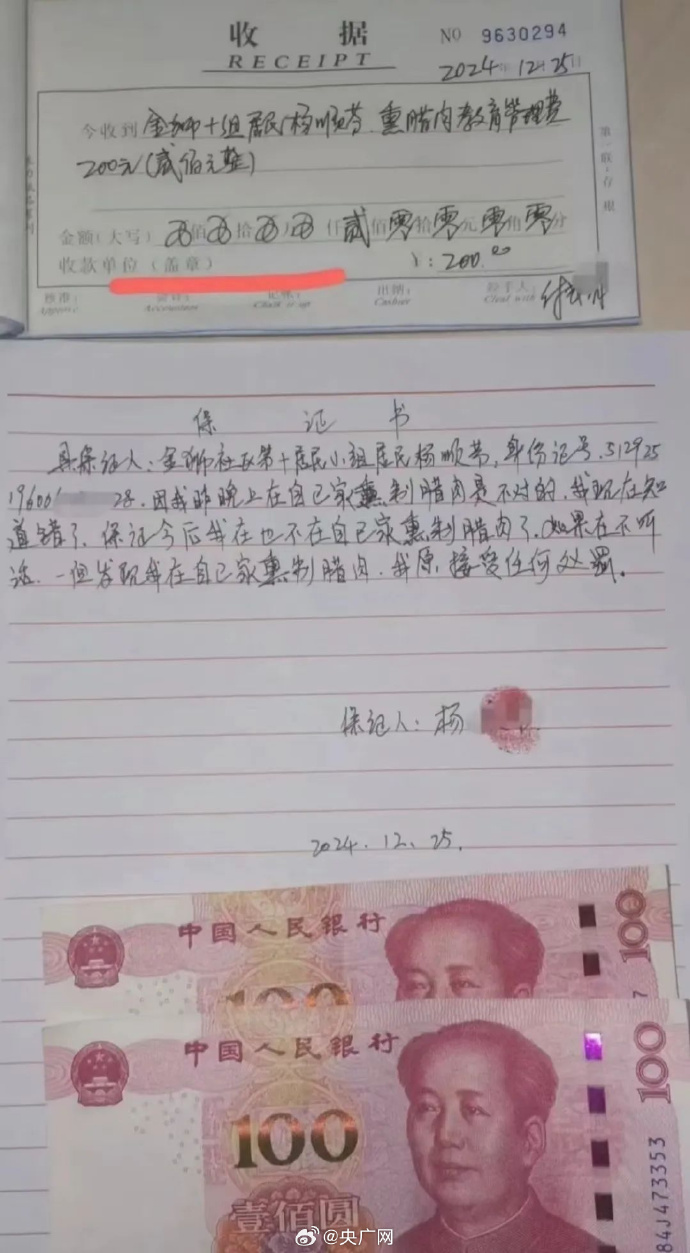 收 据
RECEIPT
NO 9630294
2024年12月25日
今收到 金狮十组居民杨顺芬.熏腊肉教育管理费
200元(贰佰元整)
金额(大写) 佰 拾 万 仟 贰 佰 零 拾 零 元 零 角 零 分
¥:200.00
收款单位(盖章)
核准: 会计: 记帐: 出纳: 经手人:
Approve Accountant Cashier Deal with
第一联:存根
保 证 书
具保证人:金狮社区第十居民小组居民杨顺芬,身份证号.512925
19600 28.因我昨晚上在自己家熏制腊肉是不对的.我现在知
道错了.保证今后我在也不在自己家熏制腊肉了.如果在不听
话.一但发现我在自己家熏制腊肉.我原接受任何处罰。
保证人:杨
2024.12.25.
中国人民银行
100
100
中国人民银行
100
100
壹佰圆
84J473353
@央广网